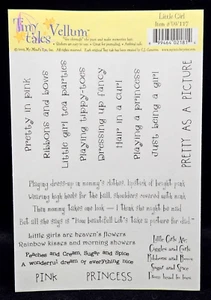 Tiny Tales
Vellum
Little Girl
Pretty in pink
Ribbons and bows
Little girl tea parties
Playing tippy-toes
Dressing up fancy
Hair in a curl
Playing a princess
Just being a girl
PRETTY AS A PICTURE
Playing dress-up in mommy's clothes, lipstick of bright pink
Wearing high heels for the ball, shoulders covered with mink
Then mommy takes one look — I think she might be mad
But all she says is "How beautiful! Let's take a picture for dad."
Little girls are heaven's flowers
Rainbow kisses and morning showers
Patches and Cream, Sugar and Spice
A wonderful dream of everything nice
PINK
PRINCESS
Little Girls Are
Giggles and Curls
Ribbons and Bows
Sugar and Spice